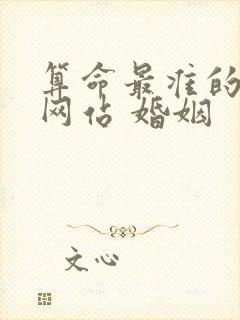 算命最准的
网站 婚姻
文心